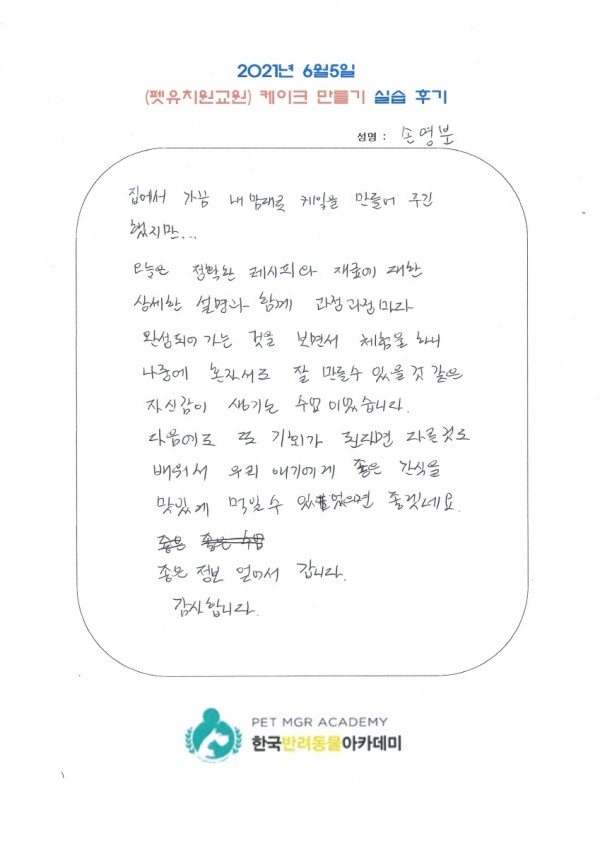 2021년 6월5일
(펫유치원교원) 케이크 만들기 실습 후기
성명 : 손영분
집에서 가끔 내 맘대로 케잌을 만들어 주긴
했지만...
오늘은 정확한 레시피와 재료에 대한
상세한 설명과 함께 과정과정마다
완성되어 가는 것을 보면서 체험을 하니
나중에 혼자서도 잘 만들수 있을 것 같은
자신감이 생기는 수업이었습니다.
다음에도 또 기회가 된다면 다른것도
배워서 우리 애기에게 좋은 간식을
맛있게 먹일수 있었으면 좋겠네요.
좋은 정보 얻어서 갑니다.
감사합니다.
PET MGR ACADEMY
한국반려동물아카데미